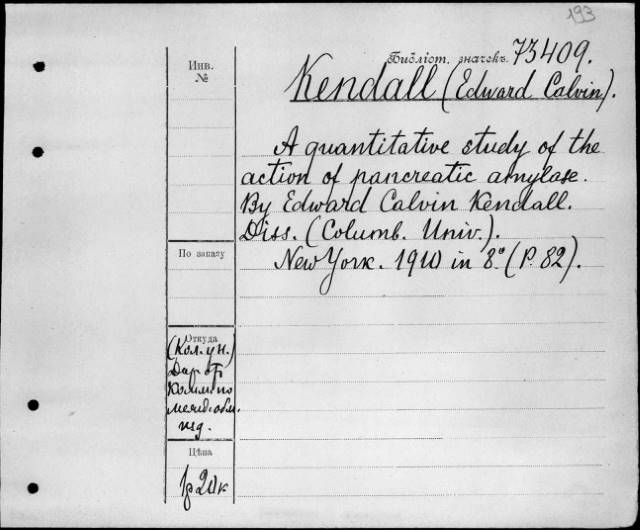 193
Библіот. значекъ 73409.
Инв.
№
Kendall (Edward Calvin).
A quantitative study of the
action of pancreatic amylase.
By Edward Calvin Kendall.
Diss. (Columb. Univ.).
New York. 1910 in 8° (P. 82).
По заказу
Откуда
(Кол. ун.)
Дар от
Комм. по
межд. обм.
изд.
Цѣна
20к